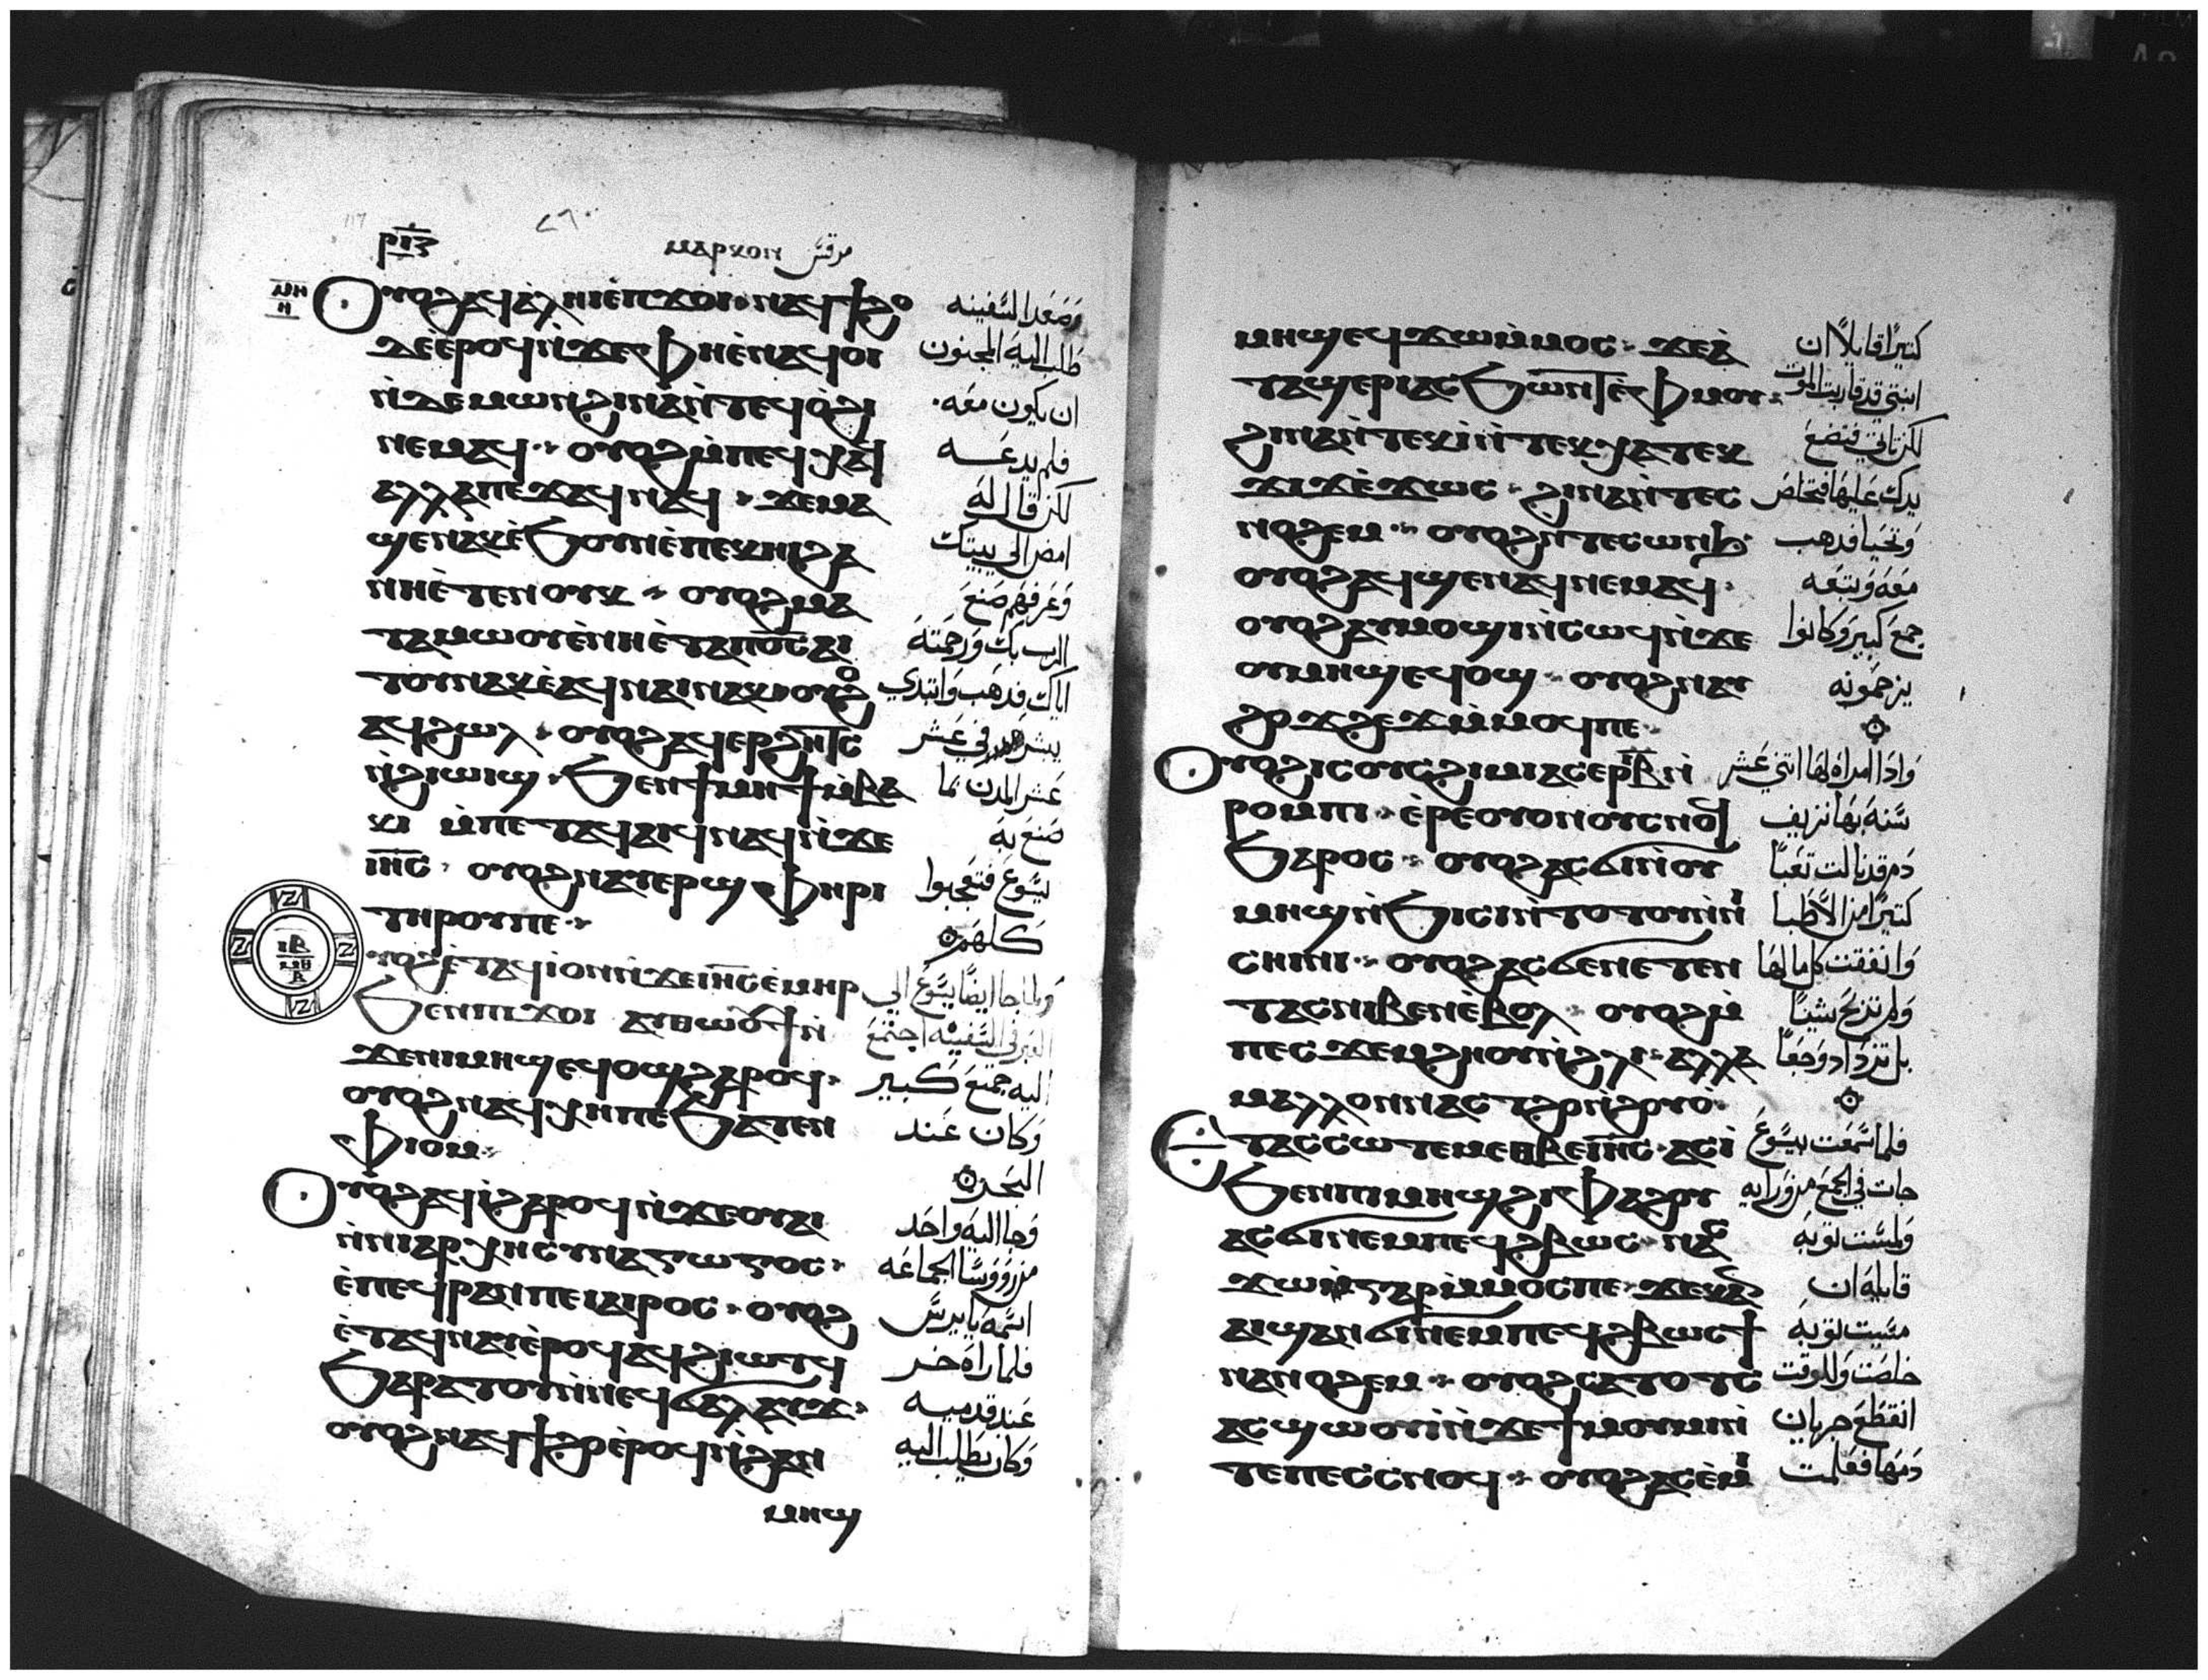 ⲣⲓⲍ ⲙⲁⲣⲕⲟⲛ مرقس
ⲟⲩⲟϩ ⲁϥⲁ̀ⲗⲏⲓ ⲉ̀ⲡϫⲟⲓ ⲛⲁϥϯϩⲟ وصعد السفينه
ϫⲉ ⲉ̀ⲣⲟϥ ⲛ̀ϫⲉ ⲫⲏ ⲉ̀ⲛⲁϥⲟⲓ طلب اليه المجنون
ⲛ̀ⲇⲉⲙⲱⲛ ϩⲓⲛⲁ ⲛ̀ⲧⲉϥⲟ̀ϩⲓ ان يكون معه.
ⲛⲉⲙⲁϥ ⲟⲩⲟϩ ⲙ̀ⲡⲉϥⲭⲁϥ فلم يدعه
ⲁⲗⲗⲁ ⲡⲉϫⲁϥ ⲛⲁϥ ϫⲉ ⲙⲁ لكن قال له
ϣⲉ ⲛⲁⲕ ⲉ̀ϧⲟⲩⲛ ⲉ̀ⲡⲉⲕⲏⲓ ϩⲁ امض الي بيتك
ⲛⲏ ⲉ̀ⲧⲉⲛⲟⲩⲕ ⲟⲩⲟϩ ⲙⲁ وعرفهم صنع
ⲧⲁⲙⲱⲟⲩ ⲉ̀ⲛⲏ ⲉ̀ⲧⲁ ⲡⲟ̅ⲥ̅ ⲁⲓ الرب بك ورحمته
ⲧⲟⲩ ⲛⲁⲕ ⲉ̀ⲁϥⲛⲁⲓ ⲛⲁⲕ ⲟⲩⲟϩ اياك فدهب وابتدي
ⲁϥϩⲱⲗ ⲟⲩⲟϩ ⲁϥⲉⲣϩⲏⲧⲥ يبشر في عشر
ⲛ̀ϩⲓⲱⲓϣ ϧⲉⲛ ϯⲙⲏϯ ⲙ̀ⲃⲁ عشر المدن بما
ⲕⲓ ⲙ̀ⲡⲉⲧⲁϥⲁⲓϥ ⲛⲁϥ ⲛ̀ϫⲉ صنع به
ⲓⲏ̅ⲥ̅ ⲟⲩⲟϩ ⲛⲁⲩⲉⲣϣⲫⲏⲣⲓ يسوع فتعجبوا
ⲧⲏⲣⲟⲩ ⲡⲉ كلهم
ⲩⲟϩ ⲉ̀ⲧⲁϥⲓ̀ ⲟⲛ ⲛ̀ϫⲉ ⲓⲏ̅ⲥ̅ ⲉ̀ⲙⲏⲣ ولما جا ايضا يسوع الي
ϧⲉⲛ ⲡⲓϫⲟⲓ ⲁⲩⲑⲱⲟⲩϯ ⲛ̀ العبر في السفينه اجتمع
ϫⲉ ⲛⲓⲙⲏϣ ⲉϥⲟϣ ϩⲁⲣⲟϥ اليه جمع كبير
ⲟⲩⲟϩ ⲛⲁϥⲭⲏ ⲡⲉ ϧⲁⲧⲉⲛ وكان عند
ⲫⲓⲟⲙ البحر
ⲟⲩⲟϩ ⲁϥⲓ̀ ϩⲁⲣⲟϥ ⲛ̀ϫⲉ ⲟⲩⲁⲓ وجا اليه واحد
ⲛ̀ⲛⲓⲁⲣⲭⲏⲥⲩⲛⲁⲅⲱⲅⲟⲥ من رووسا الجماعه
ⲉ̀ⲡⲉϥⲣⲁⲛ ⲡⲉ ⲓⲁⲓⲣⲟⲥ ⲟⲩⲟϩ اسمه يايرس
ⲉ̀ⲧⲁϥⲛⲁⲩ ⲉ̀ⲣⲟϥ ⲁϥϩⲓⲧϥ فلما راه خر
ϧⲁⲣⲁⲧⲟⲩ ⲛ̀ⲛⲉϥϭⲁⲗⲁⲩϫ عند قدميه
ⲟⲩⲟϩ ⲛⲁϥϯϩⲟ ⲉ̀ⲣⲟϥ ⲛ̀ϩⲁⲛ وكان يطلب اليه
ⲙⲏϣ
ⲙⲏϣ ⲉϥϫⲱ ⲙ̀ⲙⲟⲥ ϫⲉ ⲁ̀ كتيرا قايلا ان
ⲧⲁϣⲉⲣⲓ ⲁⲥϧⲱⲛⲧ ⲉ̀ⲫⲙⲟⲩ ابنتي قد قاربت الموت
ϩⲓⲛⲁ ⲛ̀ⲧⲉⲕⲓ̀ ⲛ̀ⲧⲉⲕⲭⲁ ⲧⲉⲕ لكن تاتي فتضع
ϫⲓϫ ⲉ̀ϫⲱⲥ ϩⲓⲛⲁ ⲛ̀ⲧⲉⲥ يدك عليها فتخلص
ⲛⲟϩⲉⲙ ⲟⲩⲟϩ ⲛ̀ⲧⲉⲥⲱⲛϧ وتحيا فدهب
ⲟⲩⲟϩ ⲁϥϣⲉ ⲛⲁϥ ⲛⲉⲙⲁϥ معه وتبعه
ⲟⲩⲟϩ ⲁⲩⲙⲟϣⲓ ⲛ̀ⲥⲱϥ ⲛ̀ϫⲉ جمع كبير وكانوا
ⲟⲩⲙⲏϣ ⲉϥⲟϣ ⲟⲩⲟϩ ⲛⲁⲩ يزحمونه
ϩⲟϫϩⲉϫ ⲙ̀ⲙⲟϥ ⲡⲉ
ⲟⲩⲟϩ ⲓⲥ ⲟⲩⲥϩⲓⲙⲓ ⲁⲥⲉⲣ ⲓ̅ⲃ̅ ⲛ̀ واذا امراه لها اتني عشر
ⲣⲟⲙⲡⲓ ⲉ̀ⲣⲉ ⲟⲩⲟⲛ ⲟⲩⲥⲛⲟϥ سنه بها نزيف
ϧⲁⲣⲟⲥ ⲟⲩⲟϩ ⲁⲥϭⲓ ⲛ̀ⲟⲩ دم قد نالت تعبا
ⲙⲏϣ ⲛ̀ϧⲓⲥⲓ ⲛ̀ⲧⲟⲧⲟⲩ ⲛ̀ⲛⲓ كتيرا من الاطبا
ⲥⲏⲓⲛⲓ ⲟⲩⲟϩ ⲁⲥϭⲉ ⲛⲉⲧⲉⲛ وانفقت كلما لها
ⲧⲁⲥ ⲛⲓⲃⲉⲛ ⲉ̀ⲃⲟⲗ ⲟⲩⲟϩ ⲙ̀ ولم تربح شيئا
ⲡⲉⲥϫⲉⲙϩⲏⲟⲩ ⲛ̀ϩⲗⲓ ⲁⲗⲗⲁ بل تزداد وجعا
ⲙⲁⲗⲗⲟⲛ ⲛⲁⲥⲧϩⲟ ⲛ̀ϩⲟⲩⲟ̀
ⲉⲧⲁⲥⲥⲱⲧⲉⲙ ⲉⲑⲃⲉ ⲓⲏ̅ⲥ̅ ⲁⲥⲓ̀ فلما سمعت بيسوع
ϧⲉⲛ ⲡⲓⲙⲏϣ ϩⲓ ⲫⲁϩⲟⲩ جات في الجمع من ورايه
ⲁⲥϭⲓ ⲛⲉⲙ ⲡⲉϥϩⲃⲱⲥ ⲛⲁⲥ ولمست توبه
ϫⲱ ⲅⲁⲣ ⲙ̀ⲙⲟⲥ ⲡⲉ ϫⲉ ⲕⲁⲛ قايله ان
ⲁⲓϣⲁⲛϭⲓ ⲛⲉⲙ ⲡⲉϥϩⲃⲱⲥ ϯ مسيت توبه
ⲛⲁⲛⲟϩⲉⲙ ⲟⲩⲟϩ ⲥⲁⲧⲟⲧⲥ خلصت وللوقت
ⲁⲥϣⲱⲟⲩⲓ̀ ⲛ̀ϫⲉ ϯⲙⲟⲩⲙⲓ ⲛ̀ انقطع جريان
ⲧⲉ ⲡⲉⲥⲥⲛⲟϥ ⲟⲩⲟϩ ⲁⲥⲉ̀ⲙⲓ دمها فعلمت